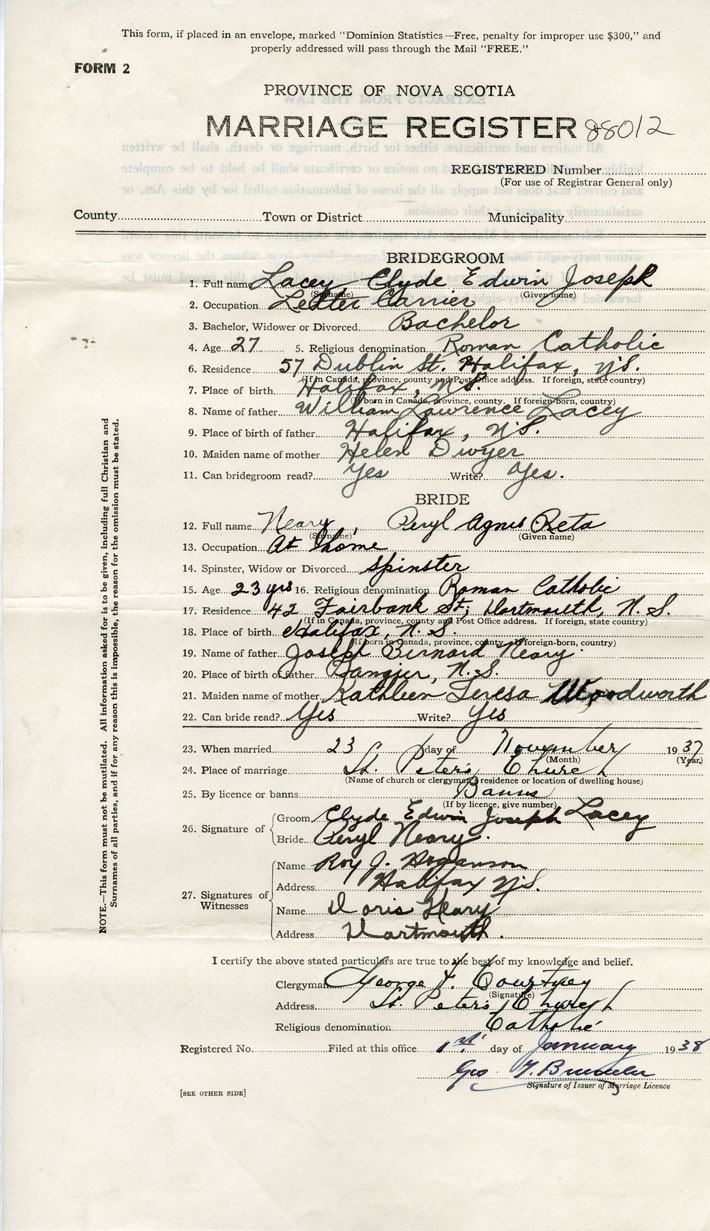 This form, if placed in an envelope, marked "Dominion Statistics—Free, penalty for improper use $300," and
properly addressed will pass through the Mail "FREE."
FORM 2
PROVINCE OF NOVA SCOTIA
MARRIAGE REGISTER 88012
REGISTERED Number
(For use of Registrar General only)
County Town or District Municipality
BRIDEGROOM
1. Full name Lacey, Clyde Edwin Joseph
(Surname) (Given name)
2. Occupation Letter Carrier
3. Bachelor, Widower or Divorced Bachelor
4. Age 27 5. Religious denomination Roman Catholic
6. Residence 57 Dublin St. Halifax, N.S.
(If in Canada, province, county and Post Office address. If foreign, state country)
7. Place of birth Halifax, N.S.
(If born in Canada, province, county. If foreign-born, country)
8. Name of father William Lawrence Lacey
9. Place of birth of father Halifax, N.S.
10. Maiden name of mother Helen Dwyer
11. Can bridegroom read? Yes Write? Yes.
BRIDE
12. Full name Neary, Peryl Agnes Reta
(Surname) (Given name)
13. Occupation At Home
14. Spinster, Widow or Divorced Spinster
15. Age 23 yrs 16. Religious denomination Roman Catholic
17. Residence 42 Fairbank St; Dartmouth, N.S.
(If in Canada, province, county and Post Office address. If foreign, state country)
18. Place of birth Halifax, N.S.
(If born in Canada, province, county. If foreign-born, country)
19. Name of father Joseph Bernard Neary
20. Place of birth of father Tangier, N.S.
21. Maiden name of mother Kathleen Teresa Woodworth
22. Can bride read? Yes Write? Yes
23. When married 23 day of November 1937
(Month) (Year)
24. Place of marriage St. Peter's Church
(Name of church or clergyman's residence or location of dwelling house)
25. By licence or banns Banns
(If by licence, give number)
26. Signature of
Groom Clyde Edwin Joseph Lacey
Bride Peryl Neary.
27. Signatures of Witnesses
Name Roy J. Hoganson
Address Halifax N.S.
Name Doris Neary
Address Dartmouth.
I certify the above stated particulars are true to the best of my knowledge and belief.
Clergyman George F. Courtney
(Signature)
Address St. Peter's Church
Religious denomination Catholic
Registered No. Filed at this office 1st day of January 1938
Geo.
Signature of Issuer of Marriage Licence
[SEE OTHER SIDE]
NOTE.—This form must not be mutilated. All information asked for is to be given, including full Christian and
Surnames of all parties, and if for any reason this is impossible, the reason for the omission must be stated.